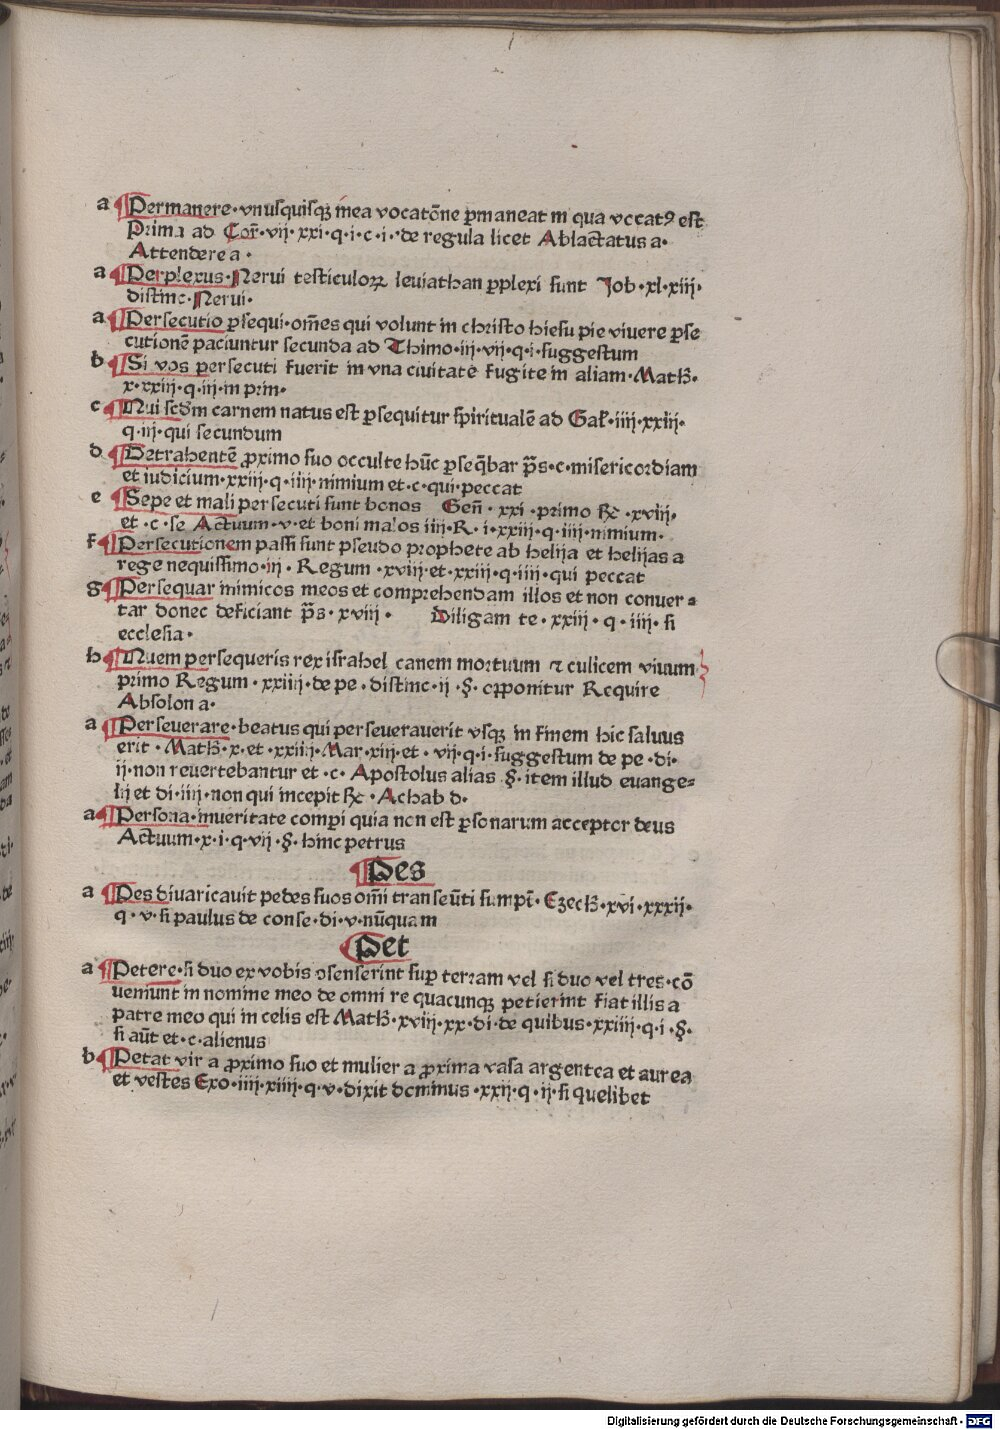 a ¶Permanere·vnusquisqꝫ inea vocatōne ꝑmaneat in qua vocatꝰ est
Prima ad Cor̄·vij·xxi·q·i·c·i·de regula licet Ablactatus a·
Attendere a·
a ¶Perplexus·Nerui testiculoꝝ leuiathan ꝑplexi sunt Job·xl·xiij·
distinc·Nerui·
a ¶Persecutio ꝑsequi·om̄es qui volunt in christo hiesu pie viuere ꝑse
cutionē paciuntur secunda ad Thimo·iij·vij·q·i·suggestum
b ¶Si vos persecuti fuerit in vna ciuitatē fugite in aliam·Math·
x·xxiij·q·iij·in prin·
c ¶Qui scd̄m carnem natus est ꝑsequitur spiritualē ad Gal·iiij·xxiij·
q·iij·qui secundum
d ¶Detrahentē ꝓximo suo occulte hūc ꝑseq̄bar p̄s·c·misericordiam
et iudicium·xxiij·q·iiij·nimium et·c·qui·peccat
e ¶Sepe et mali persecuti sunt bonos Gen̄·xxi·primo hc·xviij·
et·c·se Actuum·v·et boni malos iiij·R·i·xxiij·q·iiij·nimium·
f ¶Persecutionem passi sunt pseudo prophete ab helija et helijas a
rege nequissimo·iij·Regum·xviij·et·xxiij·q·iiij·qui peccat
g ¶Persequar inimicos meos et comprehendam illos et non conuer⸗
tar donec deficiant p̄s·xviij· Diligam te·xxiij·q·iiij·si
ecclesia·
h ¶Quem persequeris rex israhel canem mortuum ꝛ culicem viuum
primo Regum·xxiiij·de pe·distinc·ij·§·opponitur Require
Absolon a·
a ¶Perseuerare·beatus qui perseuerauerit vsqꝫ in finem hic saluus
erit·Math·x·et·xxiiij·Mar·xiij·et·vij·q·i·suggestum de pe·di·
ij·non reuertebantur et·c·Apostolus alias §·item illud euange⸗
lij et di·iiij·non qui incepit hc·Achab d·
a ¶Persona·inueritate comꝑi quia non est ꝑsonarum acceptor deus
Actuum·x·i·q·vij·§·hinc petrus
¶Pes
a ¶Pes diuaricauit pedes suos om̄i transeūti sumpt̄·Ezech·xvi·xxxij·
q·v·si paulus de conse·di·v·nūquam
¶Pet
a ¶Petere·si duo ex vobis ꝯsenserint suꝑ terram vel si duo vel tres·cō
ueniunt in nomine meo de omni re quacunqꝫ petierint fiat illis a
patre meo qui in celis est Math·xviij·xx·di·de quibus·xxiiij·q·i·§·
si aūt et·c·alienus
b ¶Petat vir a ꝓximo suo et mulier a ꝓxima vasa argentea et aurea
et vestes Exo·iiij·xiiij·q·v·dixit dominus·xxij·q·ij·si quelibet
Digitalisierung gefördert durch die Deutsche Forschungsgemeinschaft - DFG